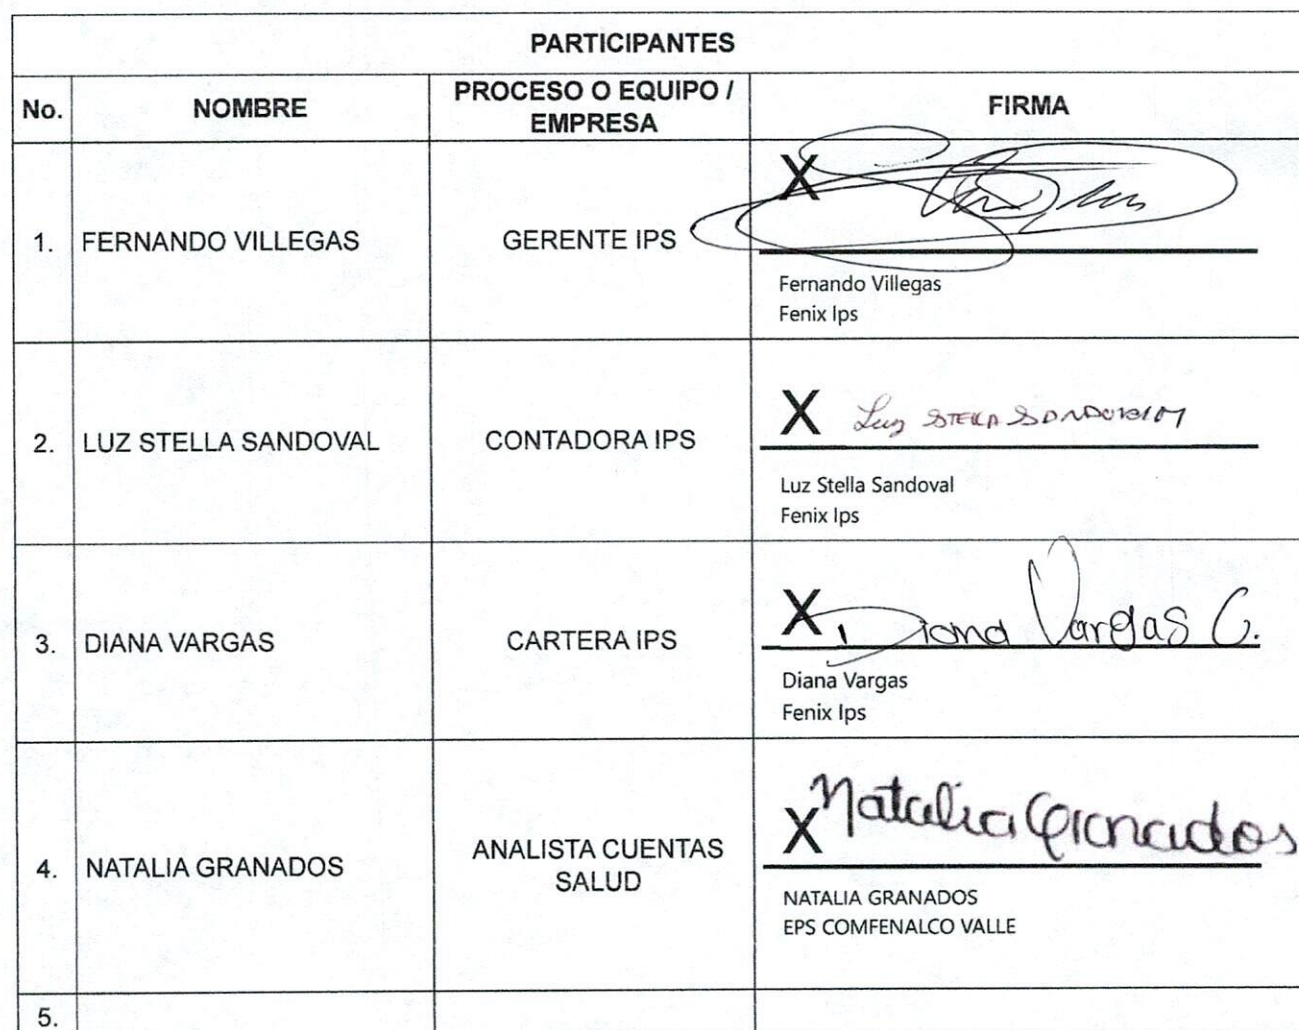 PARTICIPANTES
No. NOMBRE PROCESO O EQUIPO / EMPRESA FIRMA
1. FERNANDO VILLEGAS GERENTE IPS X
Fernando Villegas
Fenix Ips
2. LUZ STELLA SANDOVAL CONTADORA IPS X Luz STELLA SANDOVAL M
Luz Stella Sandoval
Fenix Ips
3. DIANA VARGAS CARTERA IPS X Diana Vargas C.
Diana Vargas
Fenix Ips
4. NATALIA GRANADOS ANALISTA CUENTAS SALUD X Natalia Granados
NATALIA GRANADOS
EPS COMFENALCO VALLE
5.